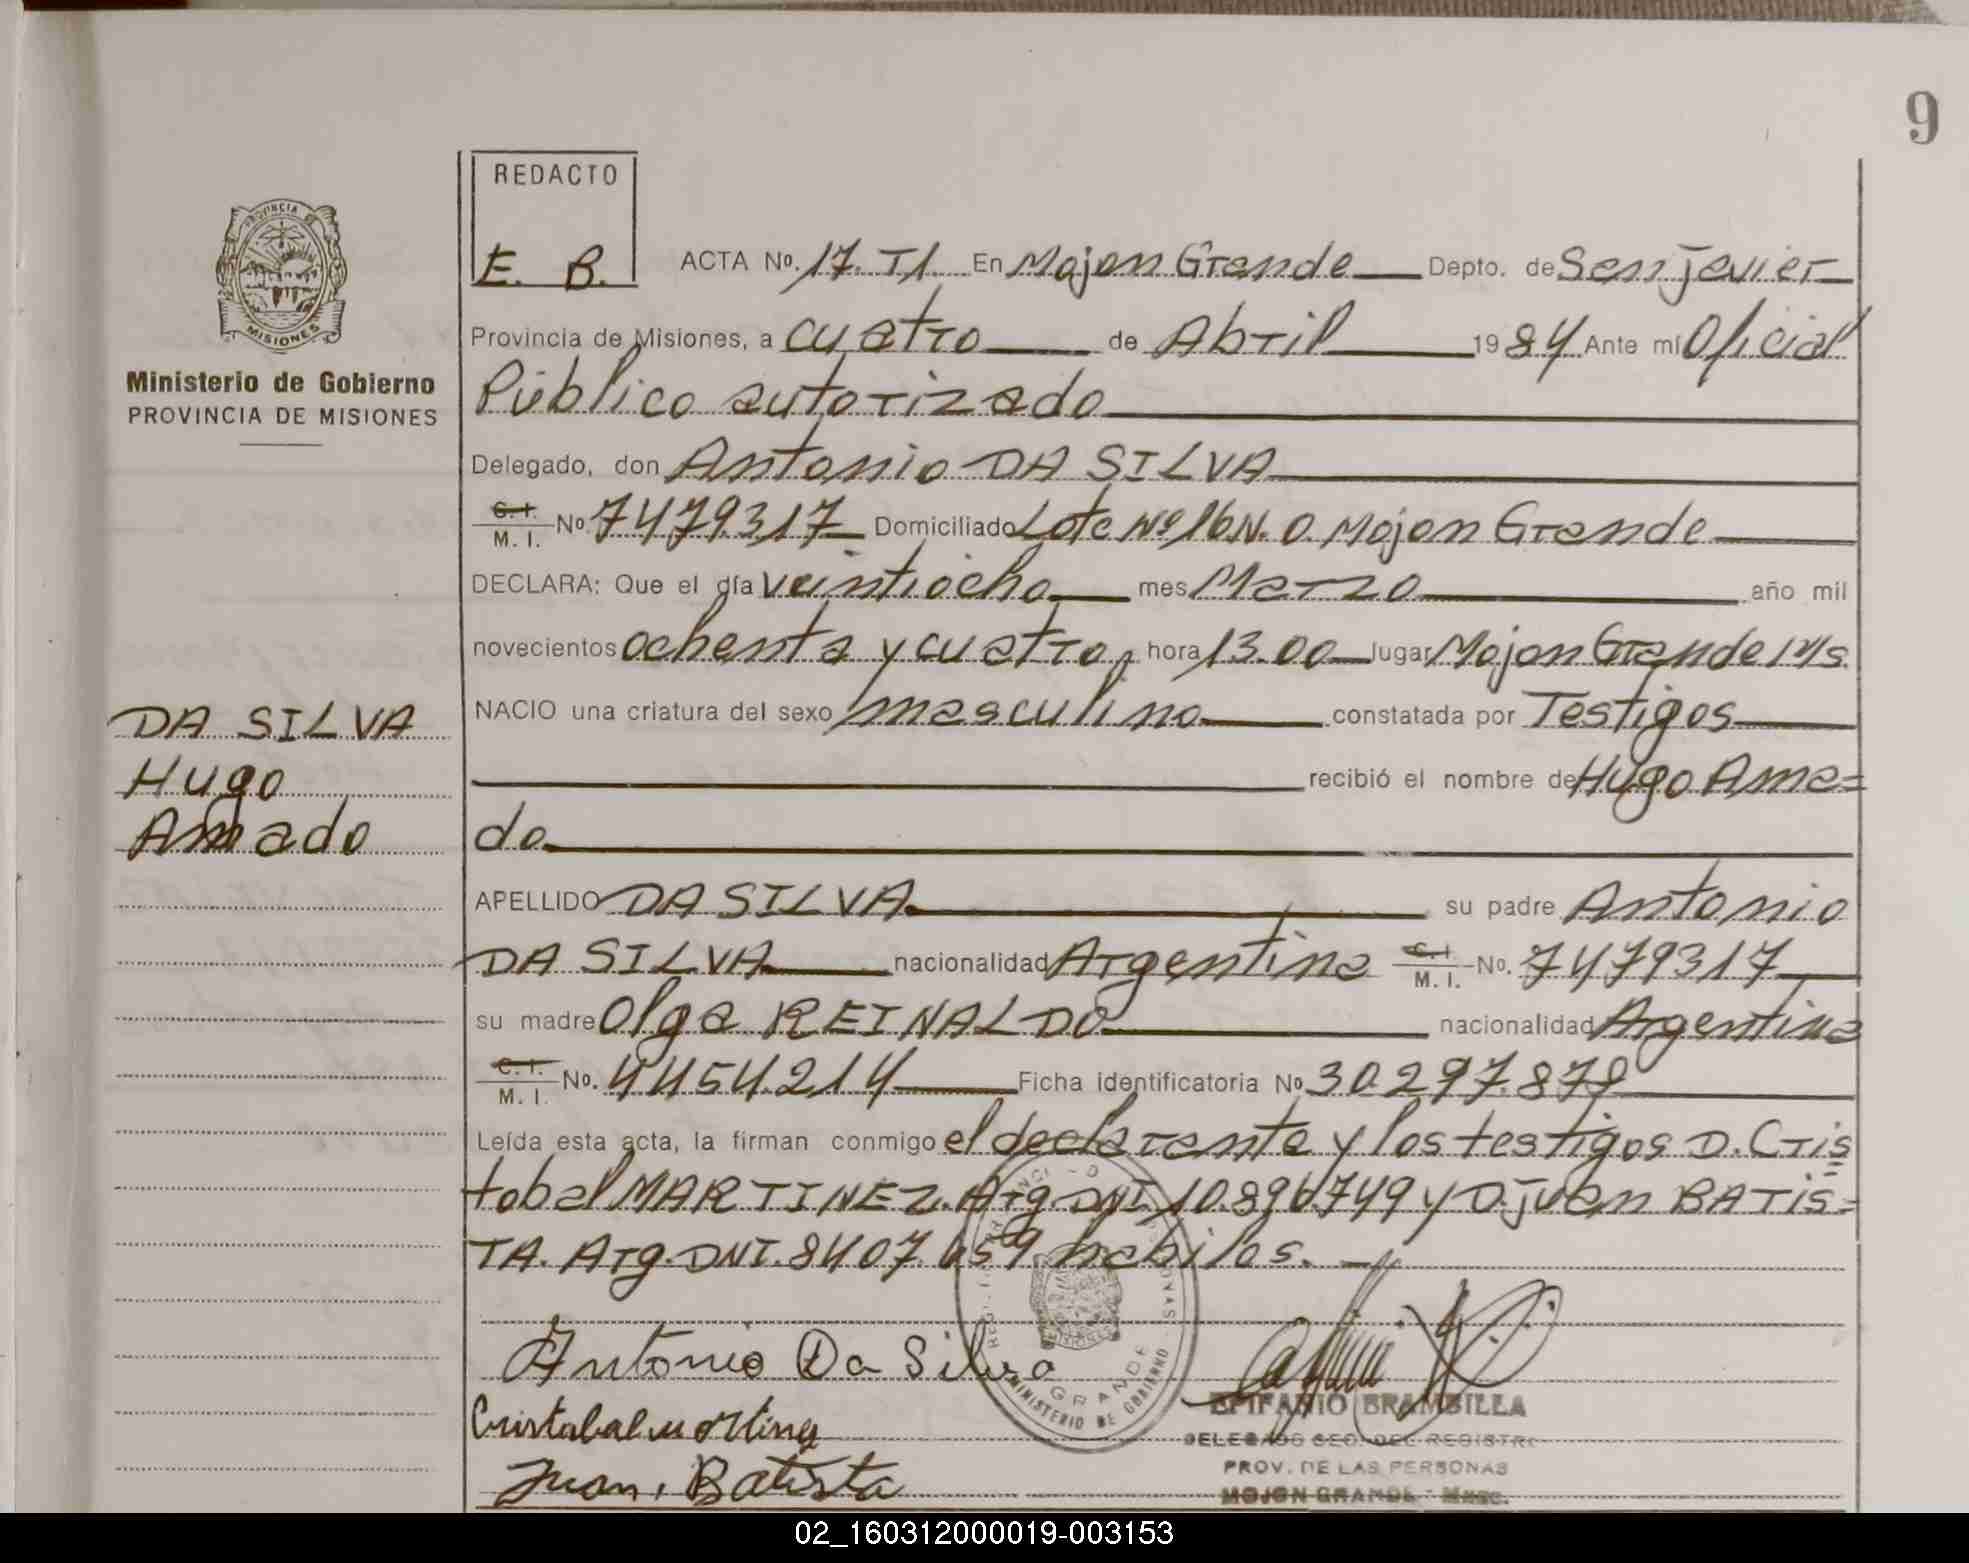 9
REDACTO
E. B.
PROVINCIA DE
MISIONES
Ministerio de Gobierno
PROVINCIA DE MISIONES
ACTA No. 17. T1. En Mojon Grande Depto. de San Javier
Provincia de Misiones, a cuatro de Abril 1984 Ante mi Oficial
Público autorizado
Delegado, don Antonio DA SILVA
C. I. / M. I. No. 7479317 Domiciliado Lote Nº 16 N. O. Mojon Grande
DECLARA: Que el día veintiocho mes Marzo año mil
novecientos ochenta y cuatro, hora 13.00 lugar Mojon Grande Ms.
NACIO una criatura del sexo masculino constatada por Testigos
recibió el nombre de Hugo Ama=
do
DA SILVA
Hugo
Amado
APELLIDO DA SILVA su padre Antonio
DA SILVA nacionalidad Argentina C. I. / M. I. No. 7479317
su madre Olga REINALDO nacionalidad Argentina
C. I. / M. I. No. 4454.214 Ficha identificatoria No. 30.297.879
Leída esta acta, la firman conmigo el declarante y los testigos D. Cris=
tobal MARTINEZ. Arg. DNI. 10.896.749 y D. Juan BATIS=
TA. Arg. DNI. 8407.659 habilos.
Antonio Da Silva
Cristobal martinez
Juan, Batista
GRANDE
MINISTERIO DE GOBIERNO
EPIFANIO BRAMBILLA
DELEGADO SEC. DEL REGISTRO
PROV. DE LAS PERSONAS
MOJON GRANDE - Mnes.
02_160312000019-003153